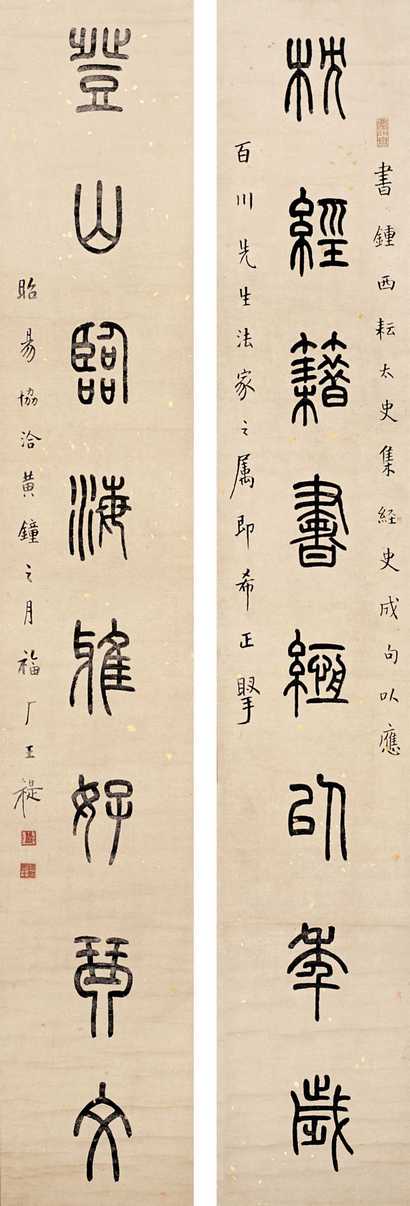 書鍾西耘太史集経史成句以應
枕經籍書緪以年歲
百川先生法家之属即希正掔
登山臨海雅好琴文
昭昜協洽黃鐘之月福厂王禔